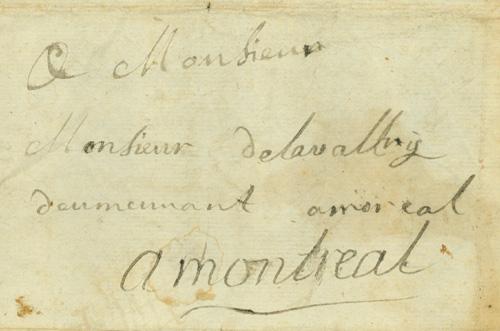 A Monsieur
Monsieur delavalltrÿ
deumeurant amoreal
a montreal